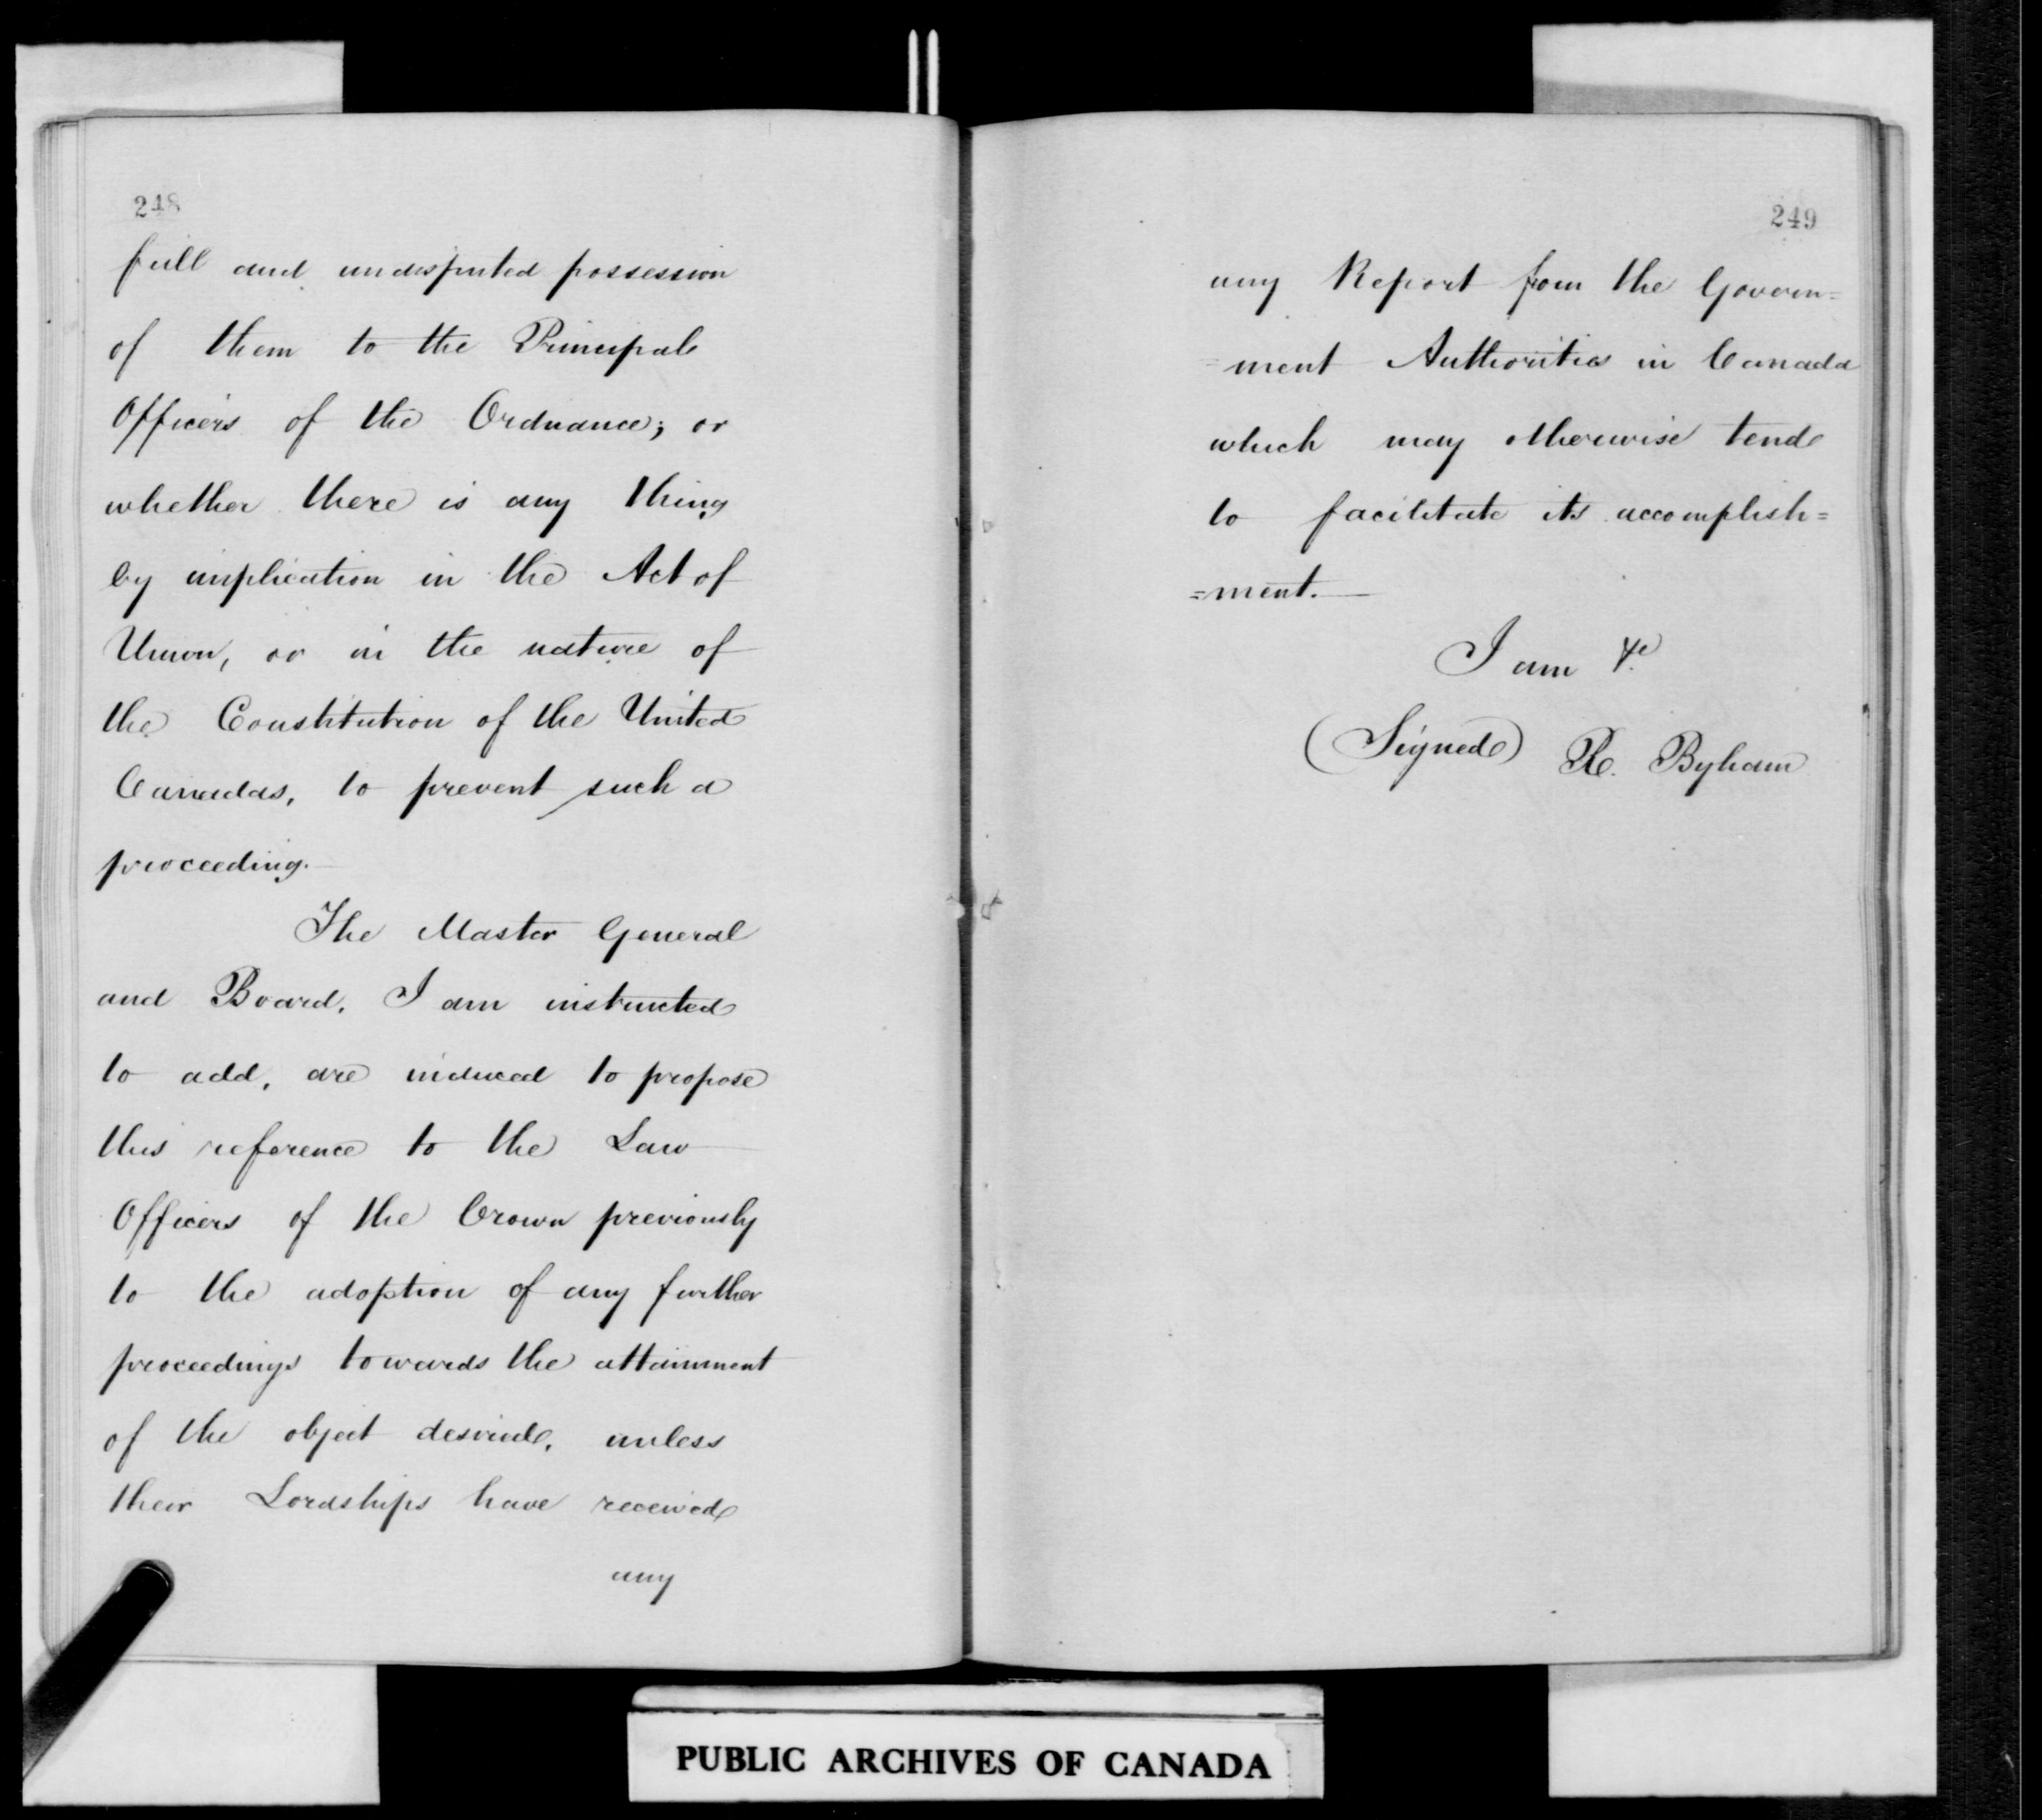 248
full and undisputed possession
of them to the Principal
Officers of the Ordnance; or
whether there is any thing
by implication in the Act of
Union, or in the nature of
the Constitution of the United
Canadas, to prevent such a
proceeding.
The Master General
and Board, I am instructed
to add, are induced to propose
this reference to the Law
Officers of the Crown previously
to the adoption of any further
proceedings towards the attainment
of the object desired, unless
their Lordships have received
any
249
any Report from the Govern=
=ment Authorities in Canada
which may otherwise tend
to facilitate its accomplish=
=ment.
I am &c
(Signed) R. Byham
PUBLIC ARCHIVES OF CANADA